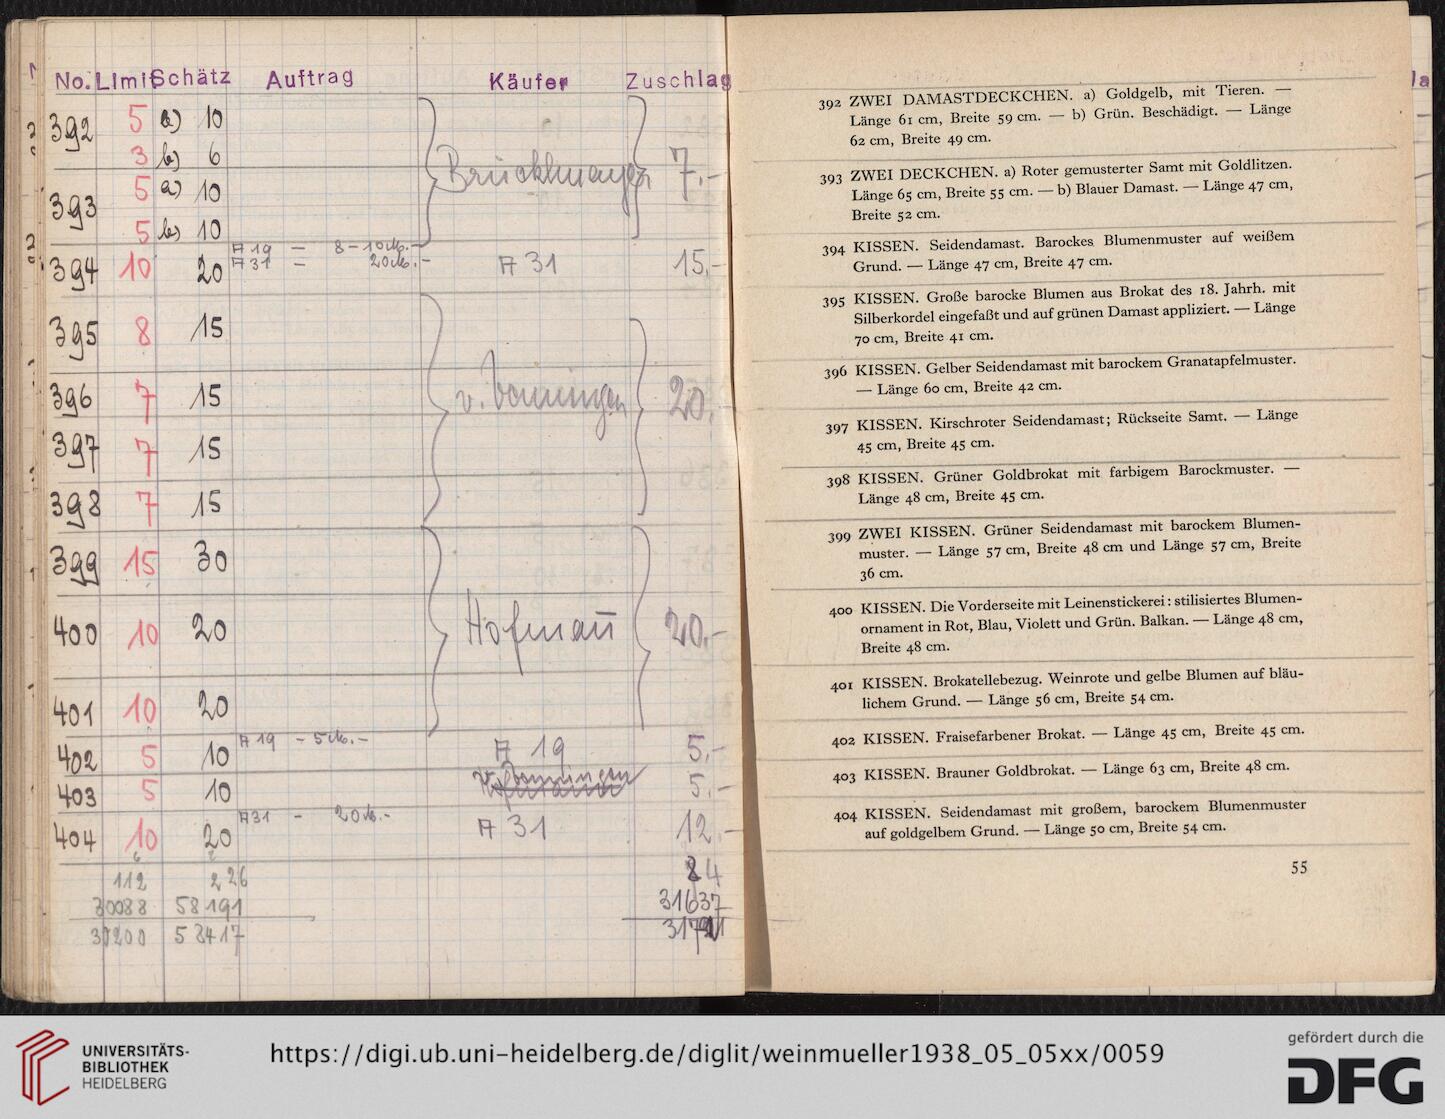 No. Limit Schätz Auftrag Käufer Zuschlag
392 5 a) 10
3 b) 6
393 5 a) 10
5 b) 10
7.-
A 19 - 8-10 M.-
A 31 - 20 M.-
394 10 20 A 31 15.-
395 8 15
396 7 15 20.
397 7 15
398 7 15
399 15 30
400 10 20 Hofmañ 20.-
401 10 20
A 19 - 5 M.-
402 5 10 A 19 5.-
403 5 10 5.-
A 31 - 20 M.-
404 10 20 A 31 12.-
112 226 84
30088 58191 31637
30200 58417
392 ZWEI DAMASTDECKCHEN. a) Goldgelb, mit Tieren. —
Länge 61 cm, Breite 59 cm. — b) Grün. Beschädigt. — Länge
62 cm, Breite 49 cm.
393 ZWEI DECKCHEN. a) Roter gemusterter Samt mit Goldlitzen.
Länge 65 cm, Breite 55 cm. — b) Blauer Damast. — Länge 47 cm,
Breite 52 cm.
394 KISSEN. Seidendamast. Barockes Blumenmuster auf weißem
Grund. — Länge 47 cm, Breite 47 cm.
395 KISSEN. Große barocke Blumen aus Brokat des 18. Jahrh. mit
Silberkordel eingefaßt und auf grünen Damast appliziert. — Länge
70 cm, Breite 41 cm.
396 KISSEN. Gelber Seidendamast mit barockem Granatapfelmuster.
— Länge 60 cm, Breite 42 cm.
397 KISSEN. Kirschroter Seidendamast; Rückseite Samt. — Länge
45 cm, Breite 45 cm.
398 KISSEN. Grüner Goldbrokat mit farbigem Barockmuster. —
Länge 48 cm, Breite 45 cm.
399 ZWEI KISSEN. Grüner Seidendamast mit barockem Blumen-
muster. — Länge 57 cm, Breite 48 cm und Länge 57 cm, Breite
36 cm.
400 KISSEN. Die Vorderseite mit Leinenstickerei: stilisiertes Blumen-
ornament in Rot, Blau, Violett und Grün. Balkan. — Länge 48 cm,
Breite 48 cm.
401 KISSEN. Brokatellebezug. Weinrote und gelbe Blumen auf bläu-
lichem Grund. — Länge 56 cm, Breite 54 cm.
402 KISSEN. Fraisefarbener Brokat. — Länge 45 cm, Breite 45 cm.
403 KISSEN. Brauner Goldbrokat. — Länge 63 cm, Breite 48 cm.
404 KISSEN. Seidendamast mit großem, barockem Blumenmuster
auf goldgelbem Grund. — Länge 50 cm, Breite 54 cm.
55
UNIVERSITÄTS-
BIBLIOTHEK
HEIDELBERG
https://digi.ub.uni-heidelberg.de/diglit/weinmueller1938_05_05xx/0059
gefördert durch die
DFG